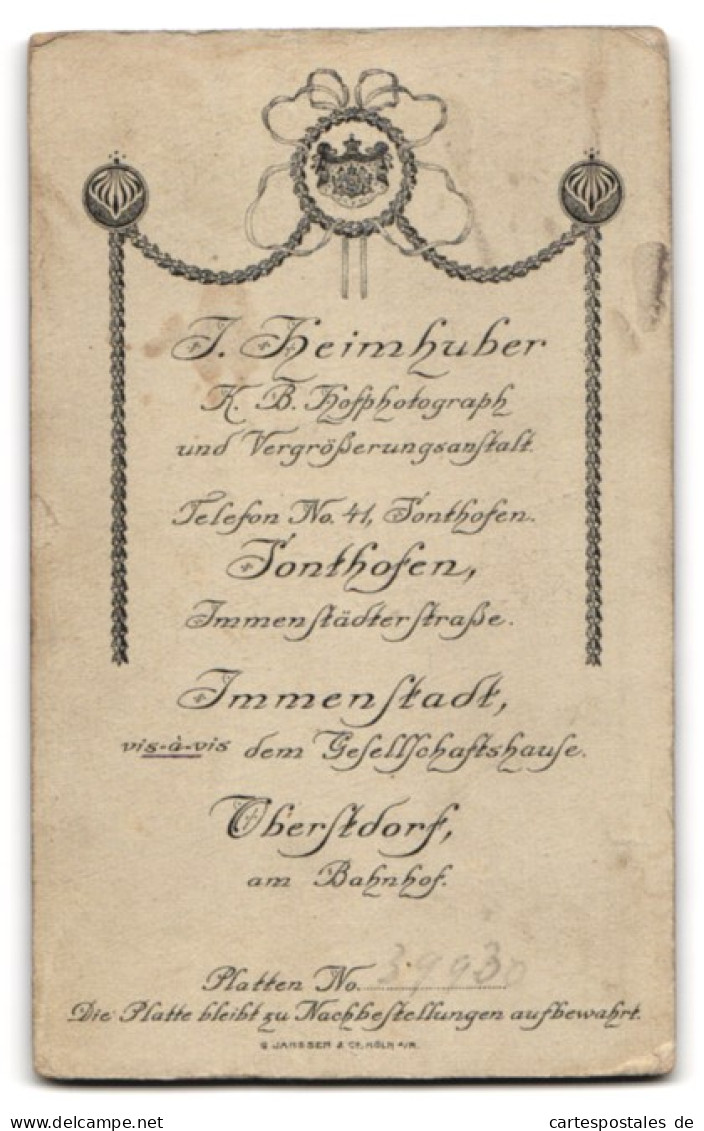 J. Heimhuber
K. B. Hofphotograph
und Vergrößerungsanſtalt.
Telefon No. 41, Sonthofen.
Sonthofen,
Immenſtädterſtraße.
Immenſtadt,
vis-à-vis dem Geſellſchaftshauſe.
Oberſtdorf,
am Bahnhof.
Platten No. 39930
Die Platte bleibt zu Nachbeſtellungen aufbewahrt.
G JANSSEN & Cº, KÖLN a/R.
cartespostales de